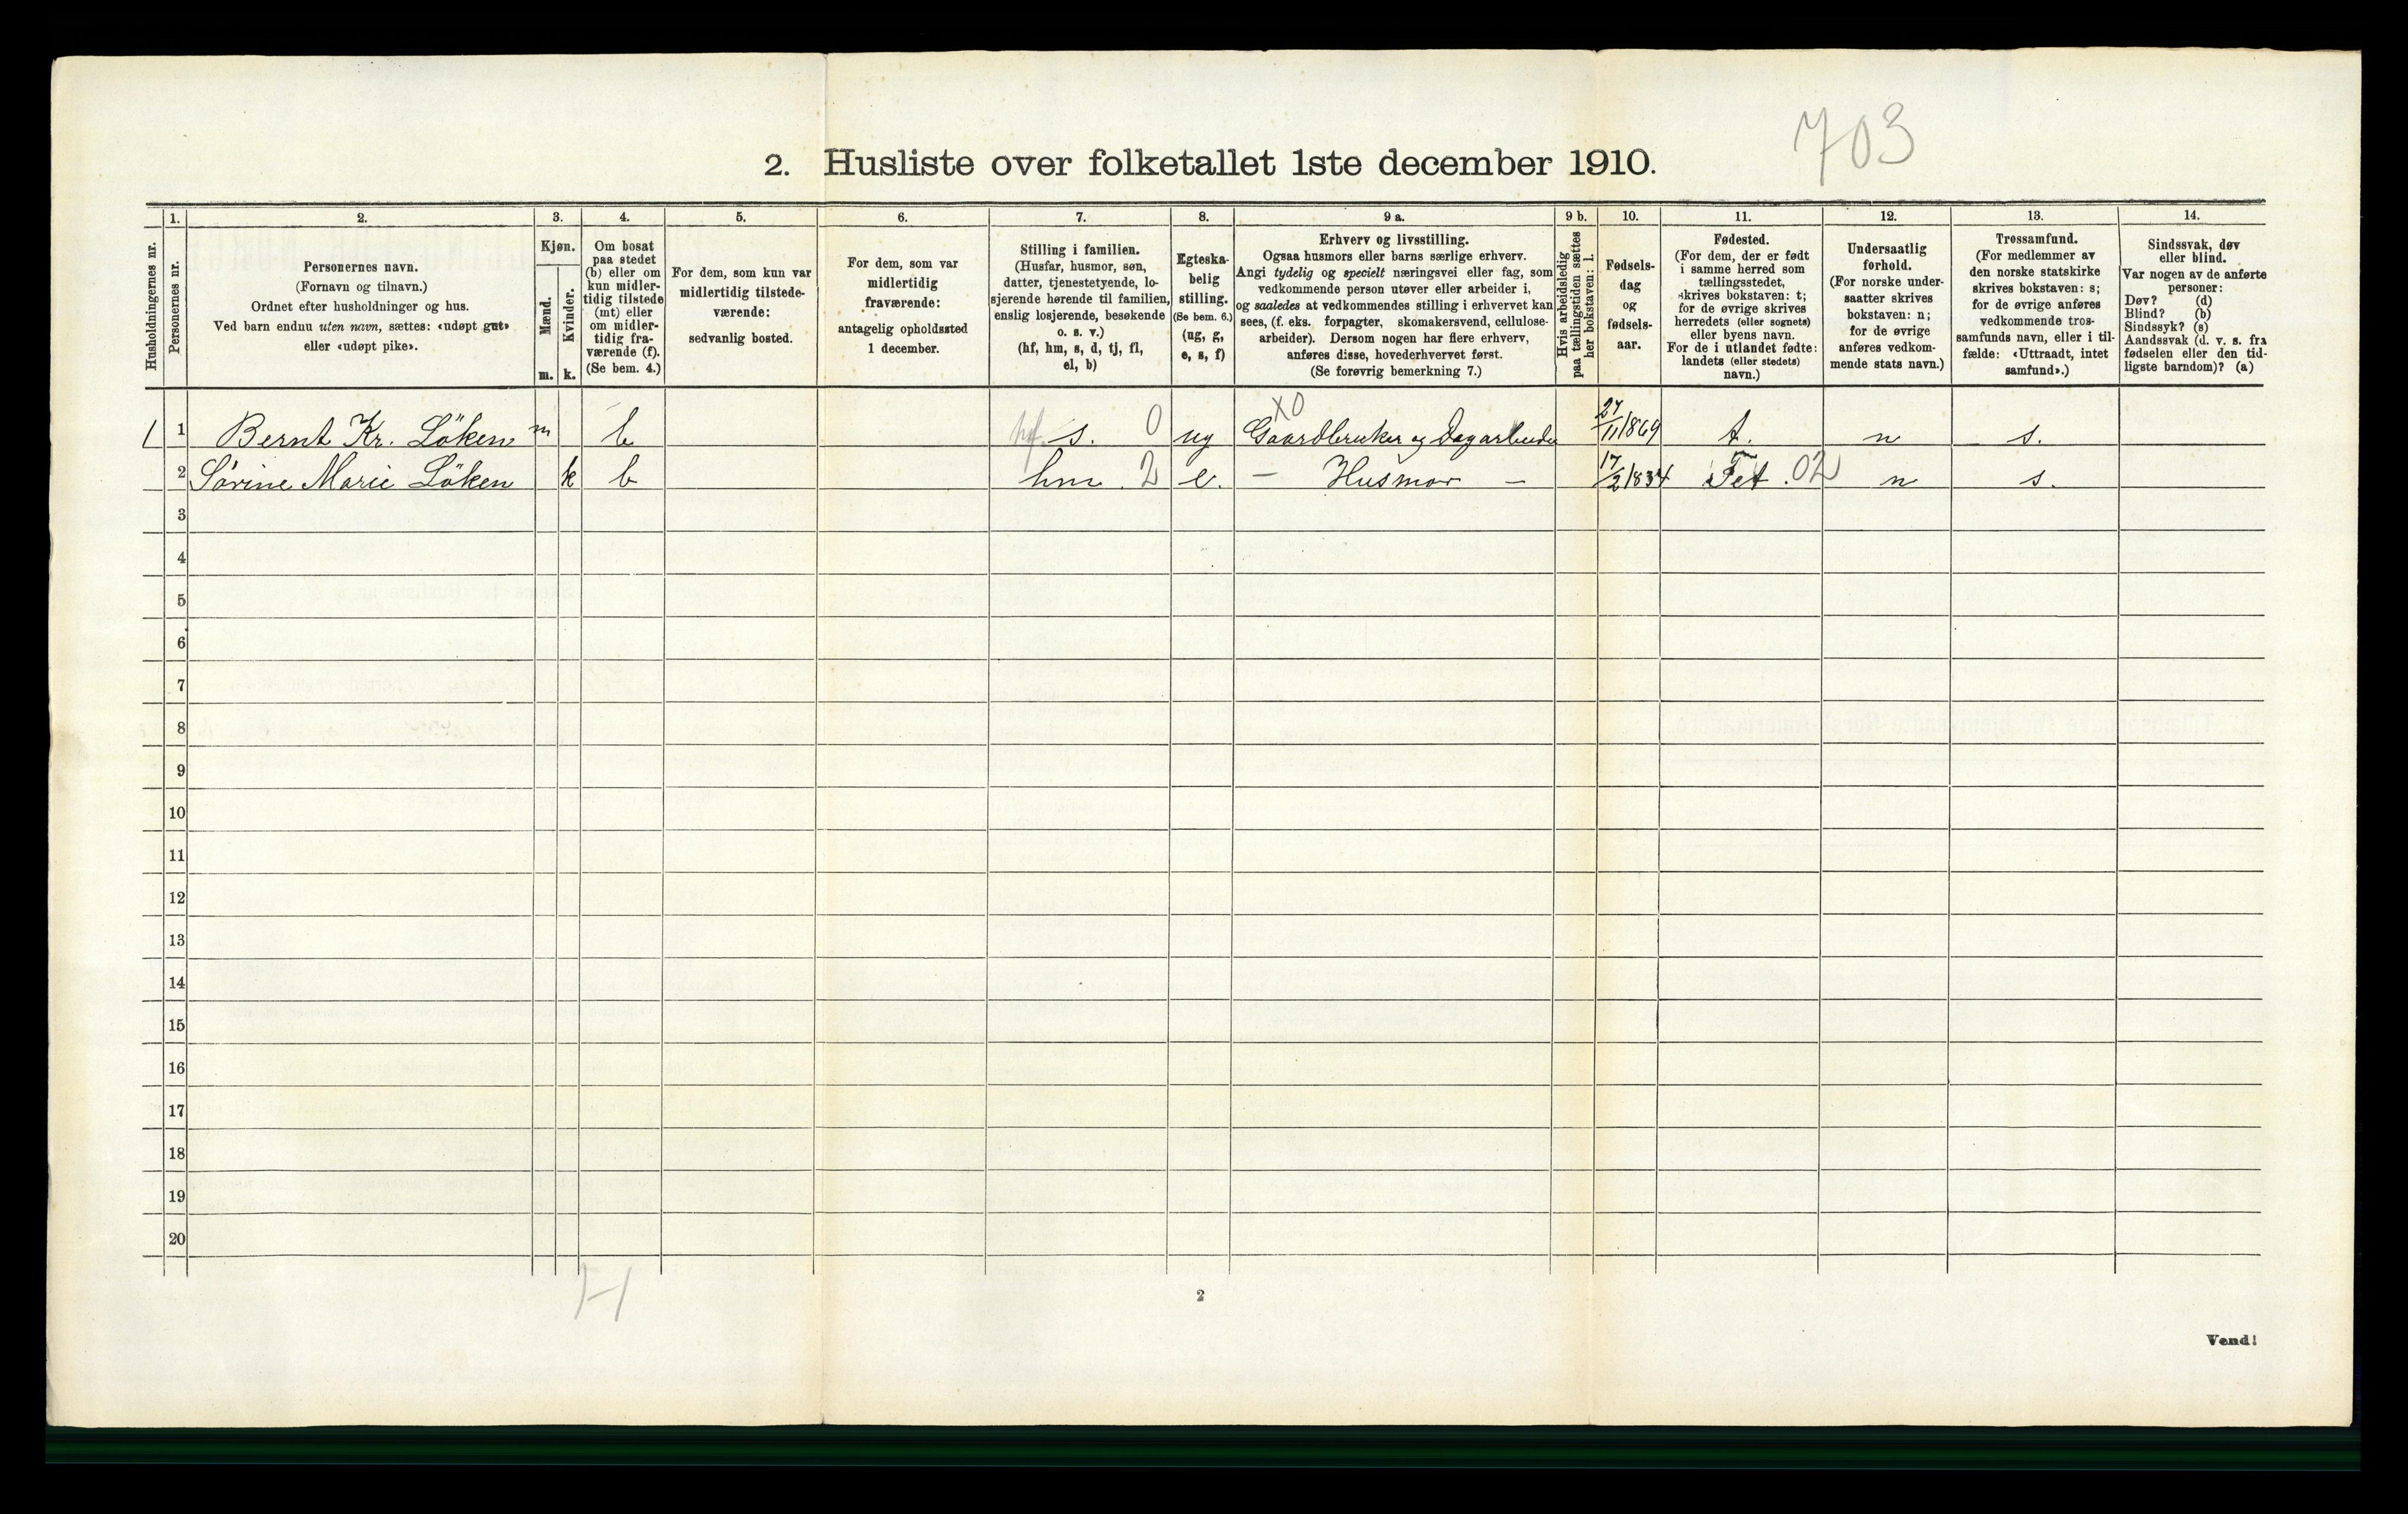 703
2. Husliste over folketallet 1ste december 1910.
1. 2. 3. 4. 5. 6. 7. 8. 9 a. 9 b. 10. 11. 12. 13. 14.
Husholdningernes nr.
Personernes nr.
Personernes navn.
(Fornavn og tilnavn.)
Ordnet efter husholdninger og hus.
Ved barn endnu uten navn, sættes: «udøpt gut»
eller «udøpt pike».
Kjøn.
Mænd.
Kvinder.
m. k.
Om bosat
paa stedet
(b) eller om
kun midler-
tidig tilstede
(mt) eller
om midler-
tidig fra-
værende (f).
(Se bem. 4.)
For dem, som kun var
midlertidig tilstede-
værende:
sedvanlig bosted.
For dem, som var
midlertidig
fraværende:
antagelig opholdssted
1 december.
Stilling i familien.
(Husfar, husmor, søn,
datter, tjenestetyende, lo-
sjerende hørende til familien,
enslig losjerende, besøkende
o. s. v.)
(hf, hm, s, d, tj, fl,
el, b)
Egteska-
belig
stilling.
(Se bem. 6.)
(ug, g,
e, s, f)
Erhverv og livsstilling.
Ogsaa husmors eller barns særlige erhverv.
Angi tydelig og specielt næringsvei eller fag, som
vedkommende person utøver eller arbeider i,
og saaledes at vedkommendes stilling i erhvervet kan
sees, (f. eks. forpagter, skomakersvend, cellulose-
arbeider). Dersom nogen har flere erhverv,
anføres disse, hovederhvervet først.
(Se forøvrig bemerkning 7.)
Hvis arbeidsledig
paa tællingstiden sættes
her bokstaven: l.
Fødsels-
dag
og
fødsels-
aar.
Fødested.
(For dem, der er født
i samme herred som
tællingsstedet,
skrives bokstaven: t;
for de øvrige skrives
herredets (eller sognets)
eller byens navn.
For de i utlandet fødte:
landets (eller stedets)
navn.)
Undersaatlig
forhold.
(For norske under-
saatter skrives
bokstaven: n;
for de øvrige
anføres vedkom-
mende stats navn.)
Trossamfund.
(For medlemmer av
den norske statskirke
skrives bokstaven: s;
for de øvrige anføres
vedkommende tros-
samfunds navn, eller i til-
fælde: «Uttraadt, intet
samfund».)
Sindssvak, døv
eller blind.
Var nogen av de anførte
personer:
Døv? (d)
Blind? (b)
Sindssyk? (s)
Aandssvak (d. v. s. fra
fødselen eller den tid-
ligste barndom)? (a)
X0
1 1 Bernt Kr. Löken m b hf. s. 0 ug Gaardbruker og Dagarbeider 27/11 1869 t. n s.
2 Sørine Marie Löken k b hm. 2 e. – Husmor – 17/2 1834 Fet. 02 n s.
3
4
5
6
7
8
9
10
11
12
13
14
15
16
17
18
19
20
2
Vend!